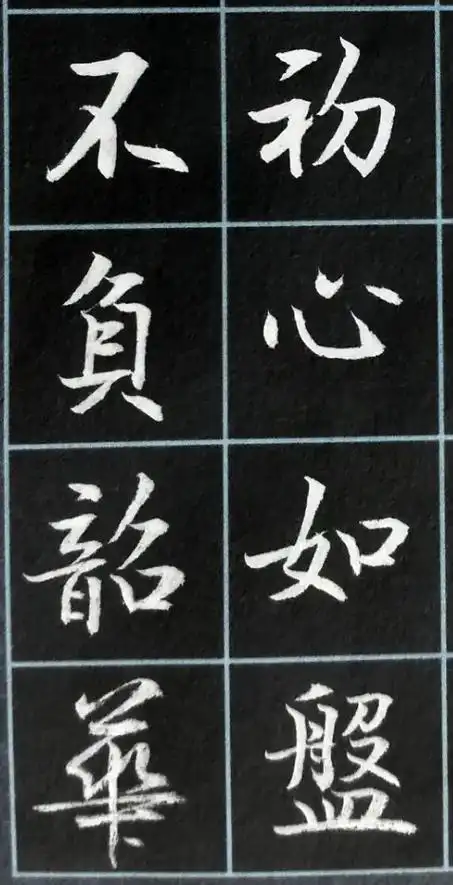 初心如盤
不負韶華